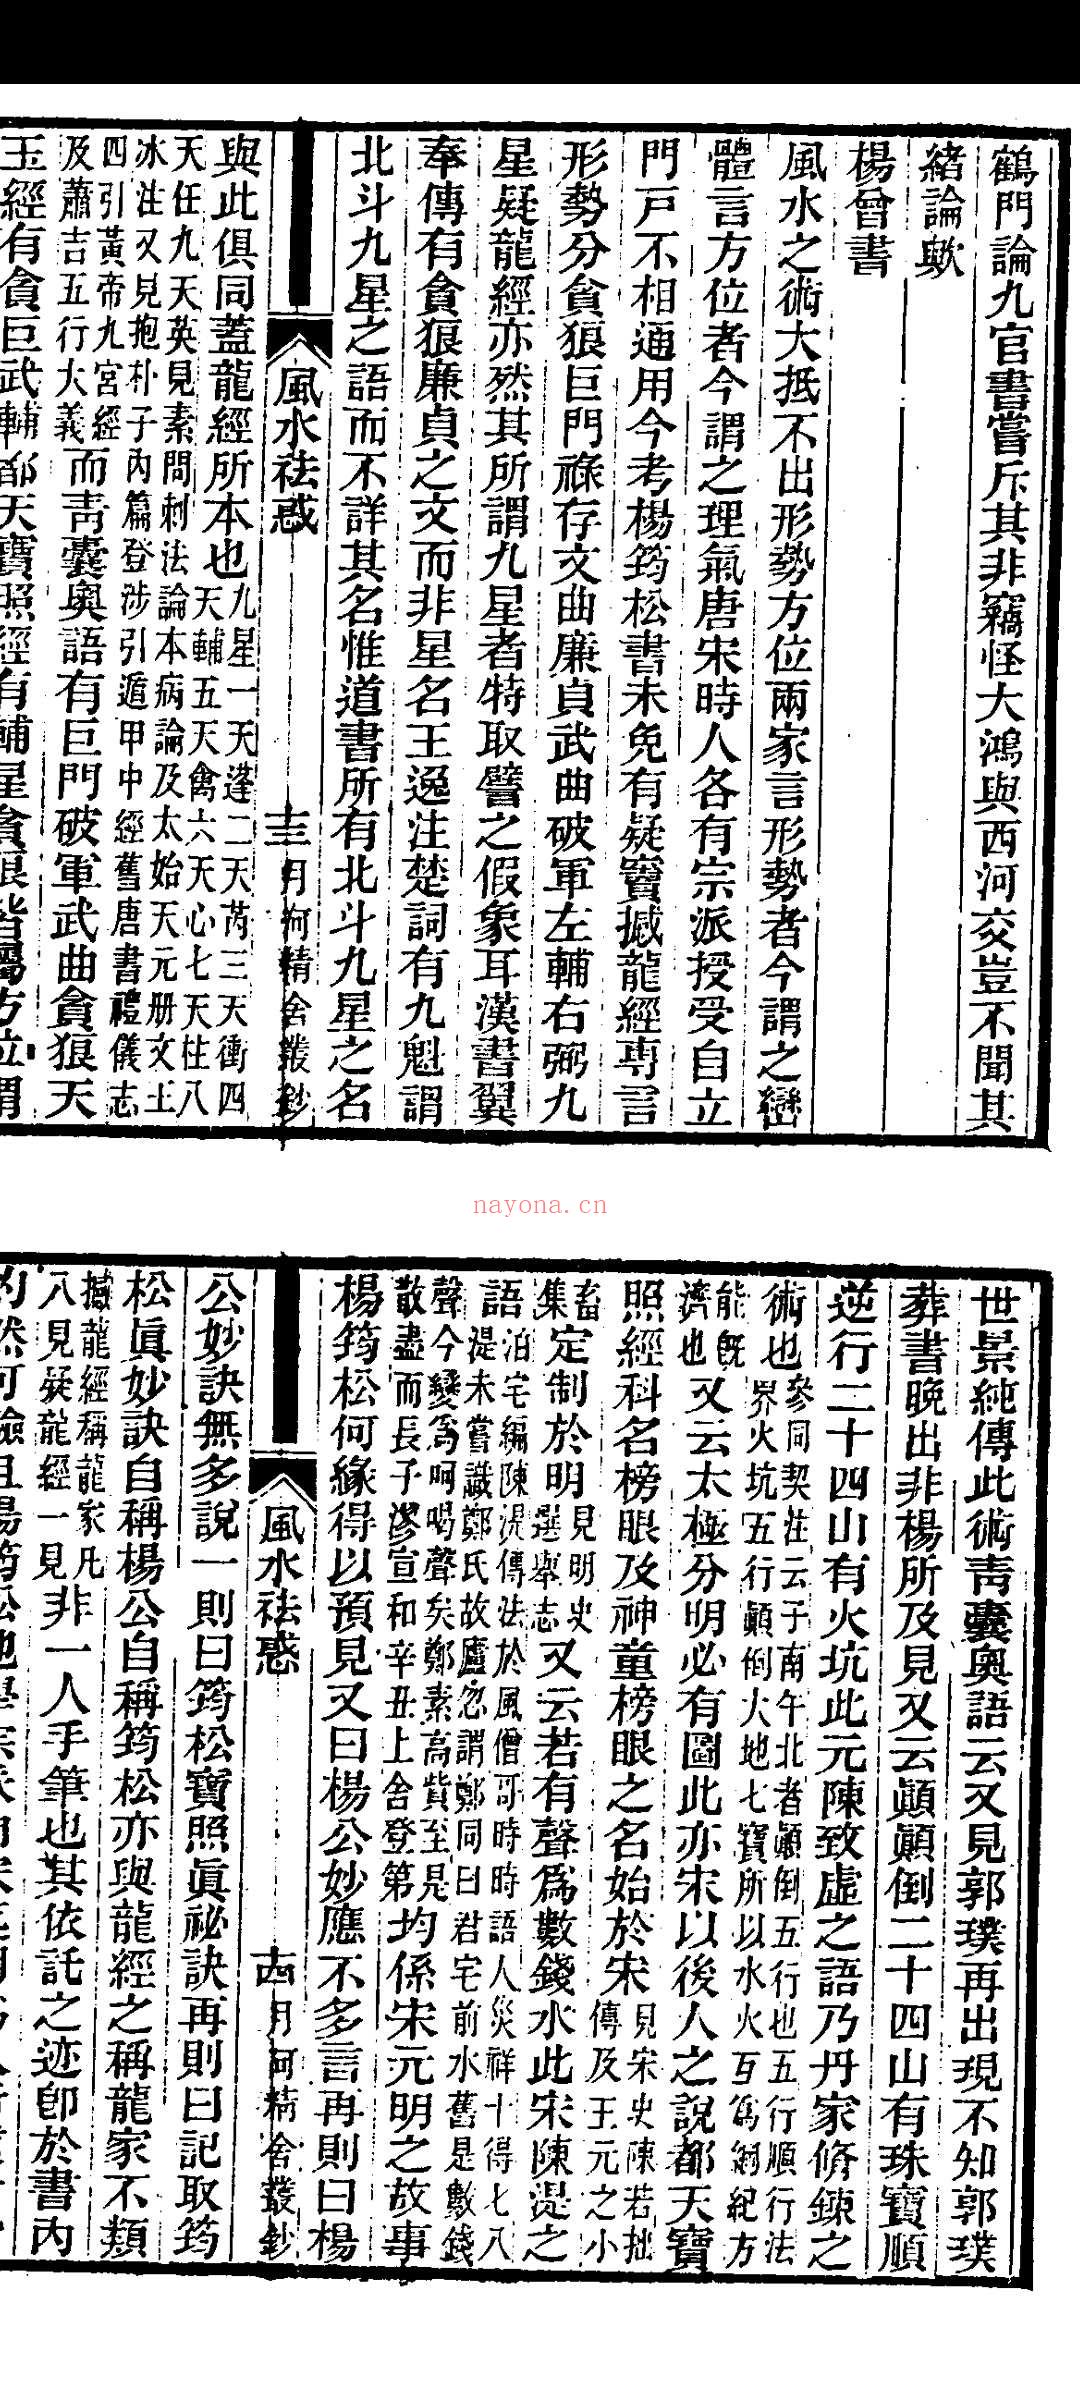 鶴門論九宫書嘗斥其非竊怪大鴻與西河交豈不聞其
緒論歟
楊曾書
風水之術大抵不出形勢方位兩家言形勢者今謂之巒
體言方位者今謂之理氣唐宋時人各有宗派授受自立
門戸不相通用今考楊筠松書未免有疑竇撼龍經專言
形勢分貪狼巨門祿存文曲廉貞武曲破軍左輔右弼九
星疑龍經亦然其所謂九星者特取譬之假象耳漢書翼
奉傳有貪狼廉貞之文而非星名王逸注楚詞有九魁謂
北斗九星之語而不詳其名惟道書所有北斗九星之名
風水祛惑
圭
月河精舍叢鈔
與此俱同蓋龍經所本也
九星一天蓬二天芮三天衝四
天輔五天禽六天心七天柱八
天任九天英見素問刺法論本病論及太始天元册文王
冰注又見抱朴子内篇登涉引遁甲中經舊唐書禮儀志
四引黃帝九宮經
及蕭吉五行大義
而靑囊奥語有巨門破軍武曲貪狼天
玉經有貪巨武輔都天寶照經有輔星貪狼皆屬方位謂
nayona.cn
世景純傳此術靑囊奥語云又見郭璞再出現不知郭璞
葬書晩出非楊所及見又云顚顚倒二十四山有珠寶順
逆行二十四山有火坑此元陳致虛之語乃丹家脩鍊之
術也
參同契注云子南午北者顚倒五行也五行順行法
界火坑五行顚倒大地七寶所以水火互爲綱紀方
能旣
濟也
又云太極分明必有圖此亦宋以後人之說都天寶
照經科名榜眼及神童榜眼之名始於宋
見宋史陳若拙
傳及王元之小
畜
集
定制於明
見明史
選舉志
又云若有聲爲數錢水此宋陳湜之
語
泊宅編陳湜傳法於風僧哥時時語人災祥十得七八
湜未嘗識鄭氏故廬忽謂鄭同曰君宅前水舊是數錢
聲今變爲呵喝聲矣鄭素高貲至是
散盡而長子漻宣和辛丑上舍登第
均係宋元明之故事
楊筠松何緣得以預見又曰楊公妙應不多言再則曰楊
風水祛惑
古
月河精舍叢鈔
公妙訣無多說一則曰筠松寶照眞祕訣再則曰記取筠
松眞妙訣自稱楊公自稱筠松亦與龍經之稱龍家不類
撼龍經稱龍家凡
八見疑龍經一見
非一人手筆也其依託之迹卽於書内